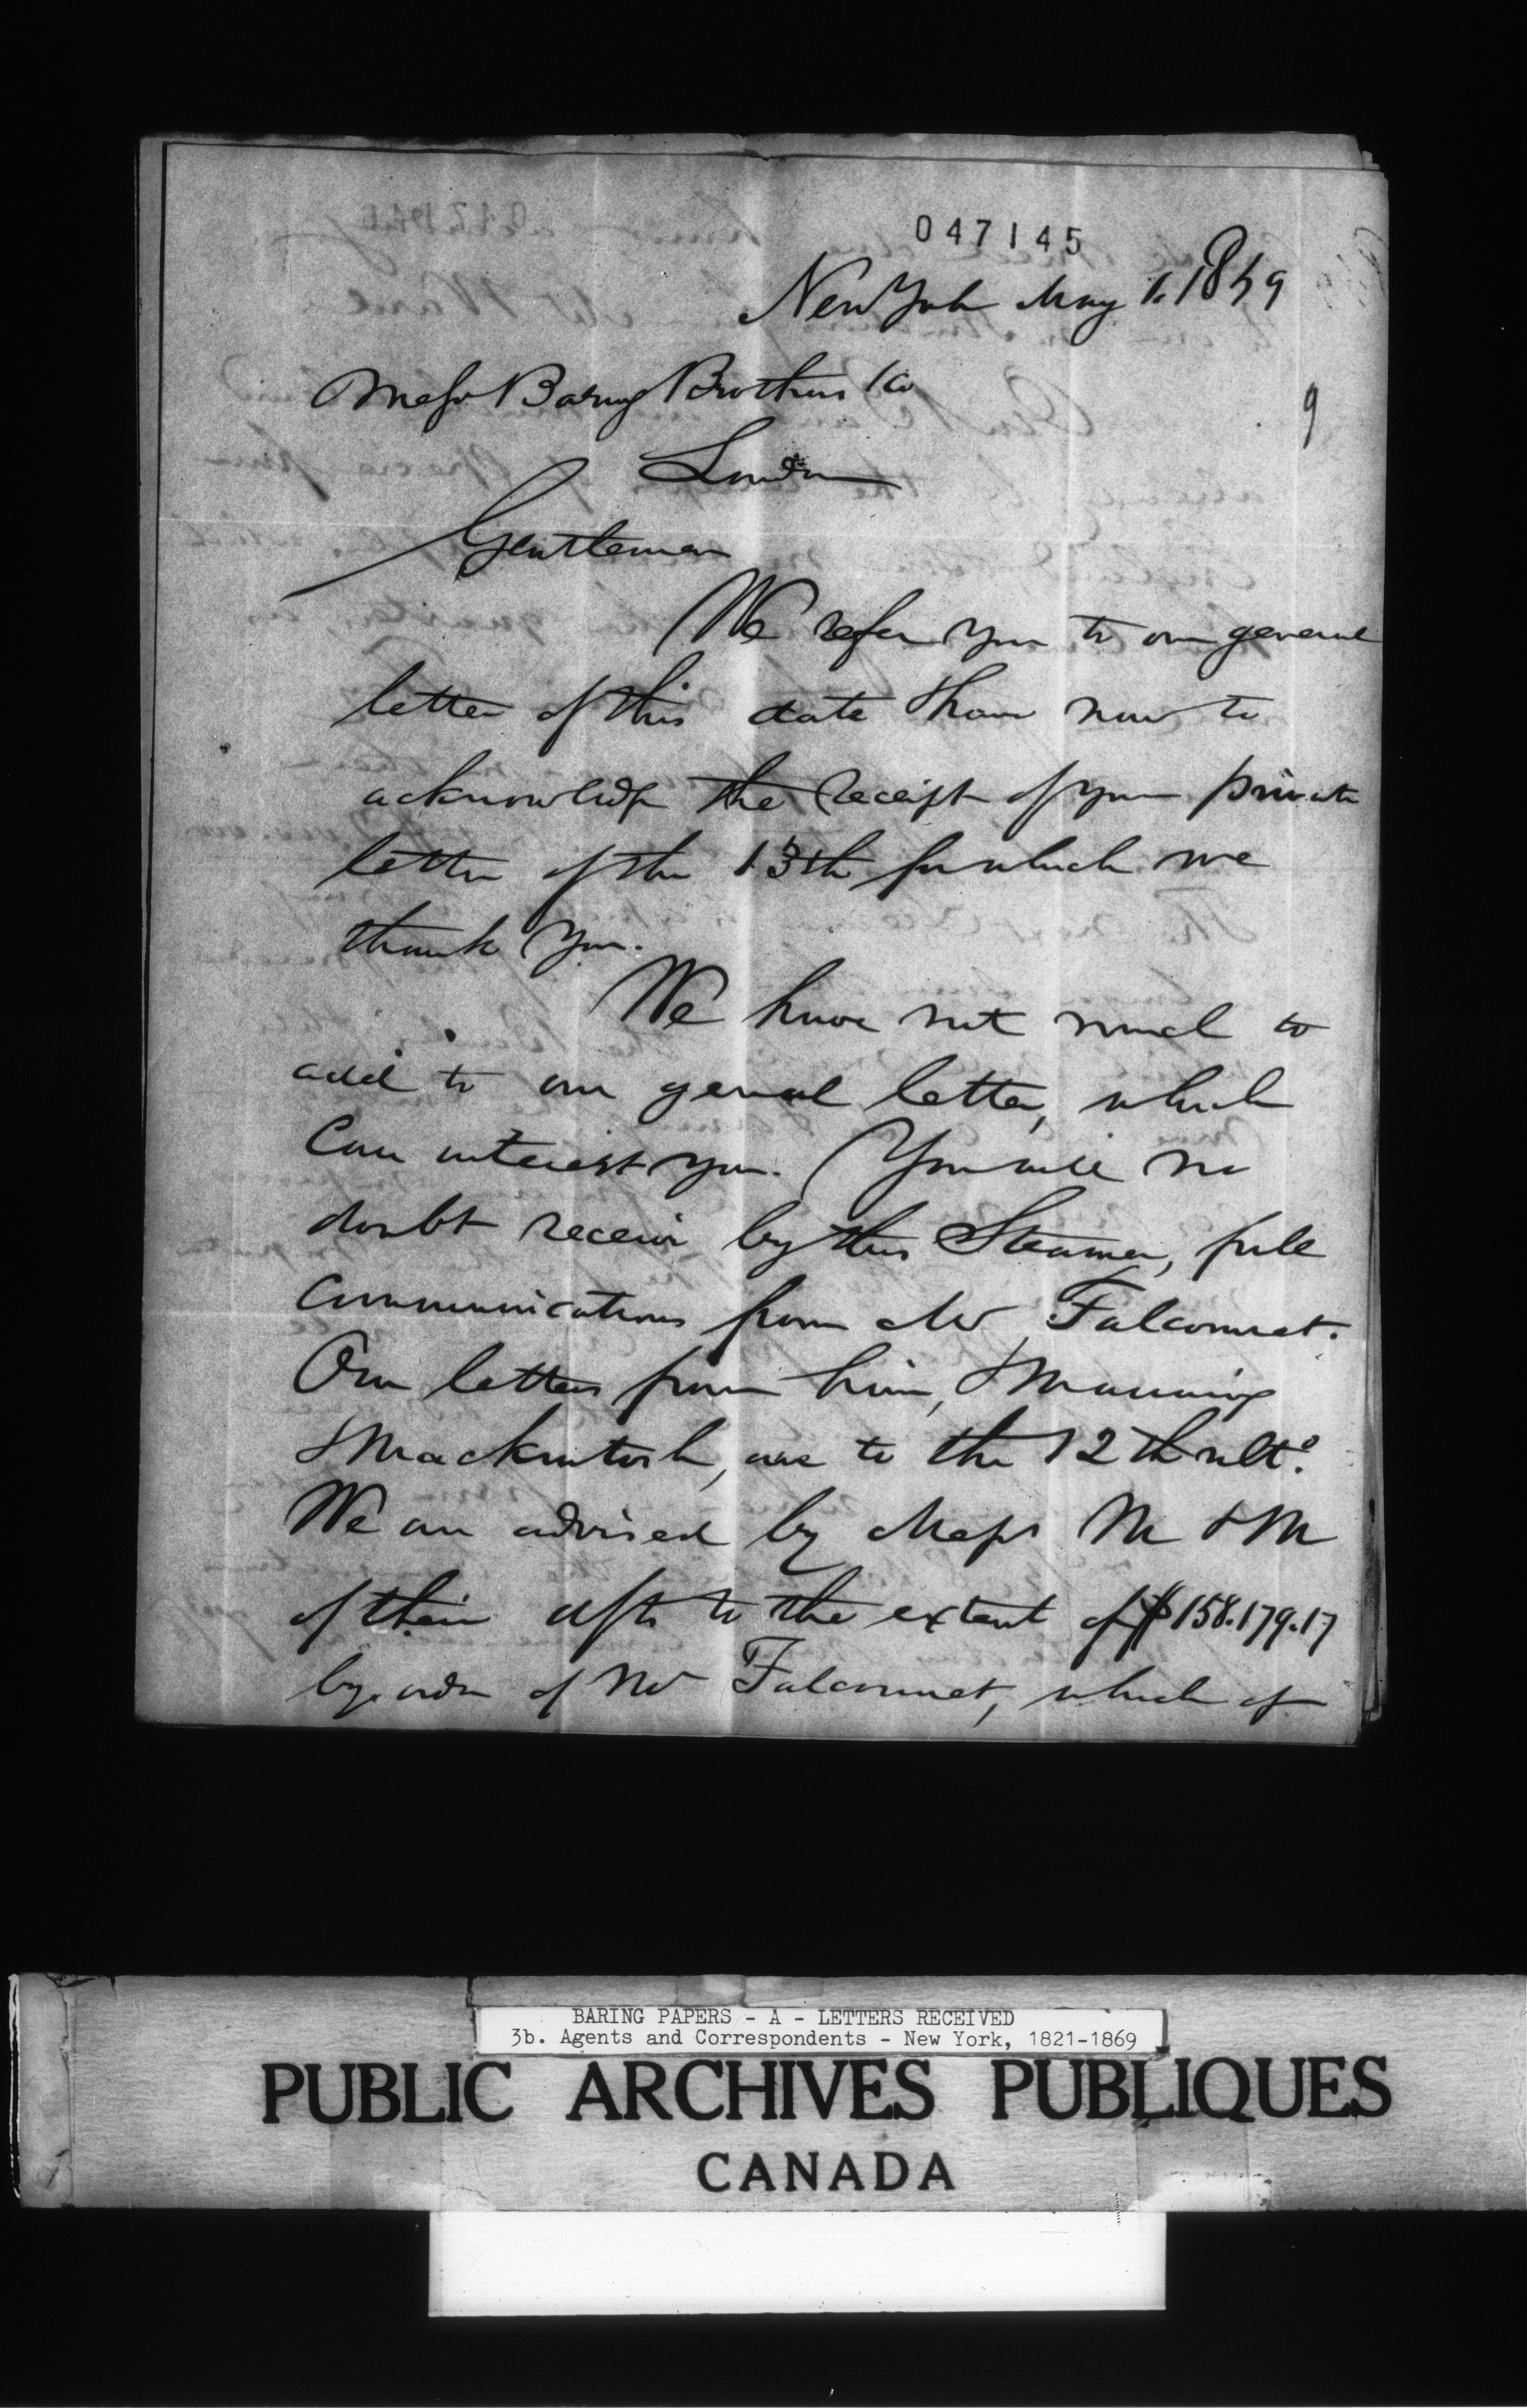 047145
New York May 1. 1849
9
Messrs Baring Brothers & Co
London
Gentlemen
We refer you to our general
letter of this date & have now to
acknowledge the receipt of your private
letter of the 13th for which we
thank you.
We have not much to
add to our general letter, which
can interest you. You will no
doubt receive by this Steamer, full
communications from Mr Falconnet.
Our letters from him, & Manning
& Mackintosh, are to the 12th ulto.
We are advised by Messrs M & M
of their dfts to the extent of $158.179.17
by order of Mr Falconnet, which of
BARING PAPERS - A - LETTERS RECEIVED
3b. Agents and Correspondents - New York, 1821-1869
PUBLIC ARCHIVES PUBLIQUES
CANADA